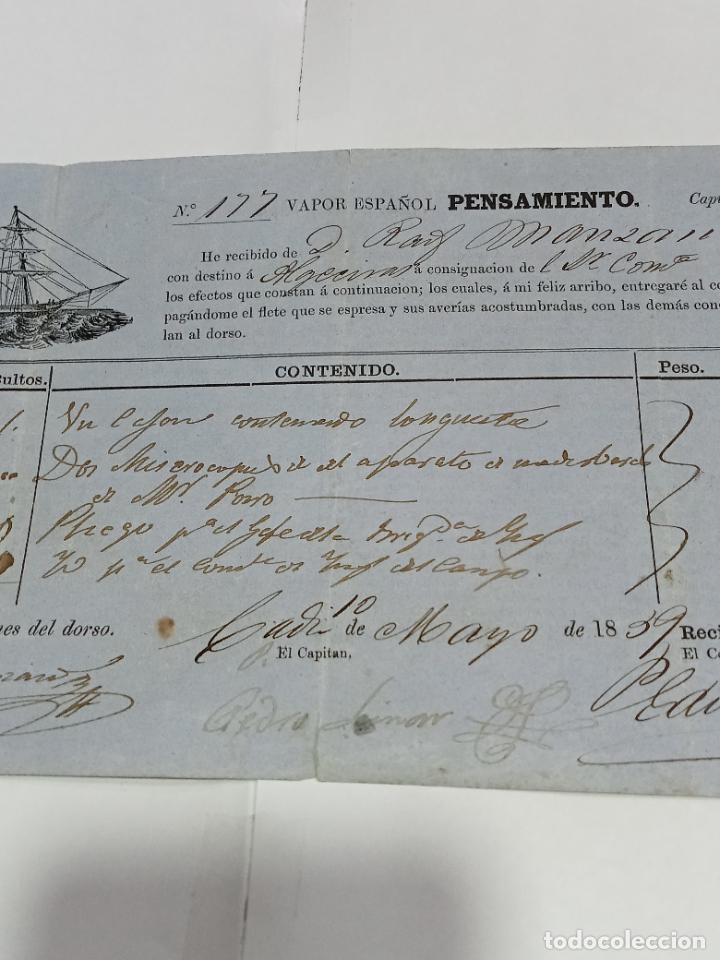 N.º 177 VAPOR ESPAÑOL PENSAMIENTO. Capi
He recibido de D. Raf Manzan
con destino á Algeciras á consignacion de l Sr. Comte
los efectos que constan á continuacion; los cuales, á mi feliz arribo, entregaré al co
pagándome el flete que se espresa y sus averías acostumbradas, con las demás con
lan al dorso.
ultos. CONTENIDO. Peso.
1. Un cajon conteniendo
Dos del aparato de
de Mr. Porro
Pliego pa el Gefe de la Brigda de
Yd pa el Comte de del Campo.
es del dorso. Cadiz 10 de Mayo de 1859 Reci
El Capitan, El C
Pedro
todocoleccion
todocoleccion.net